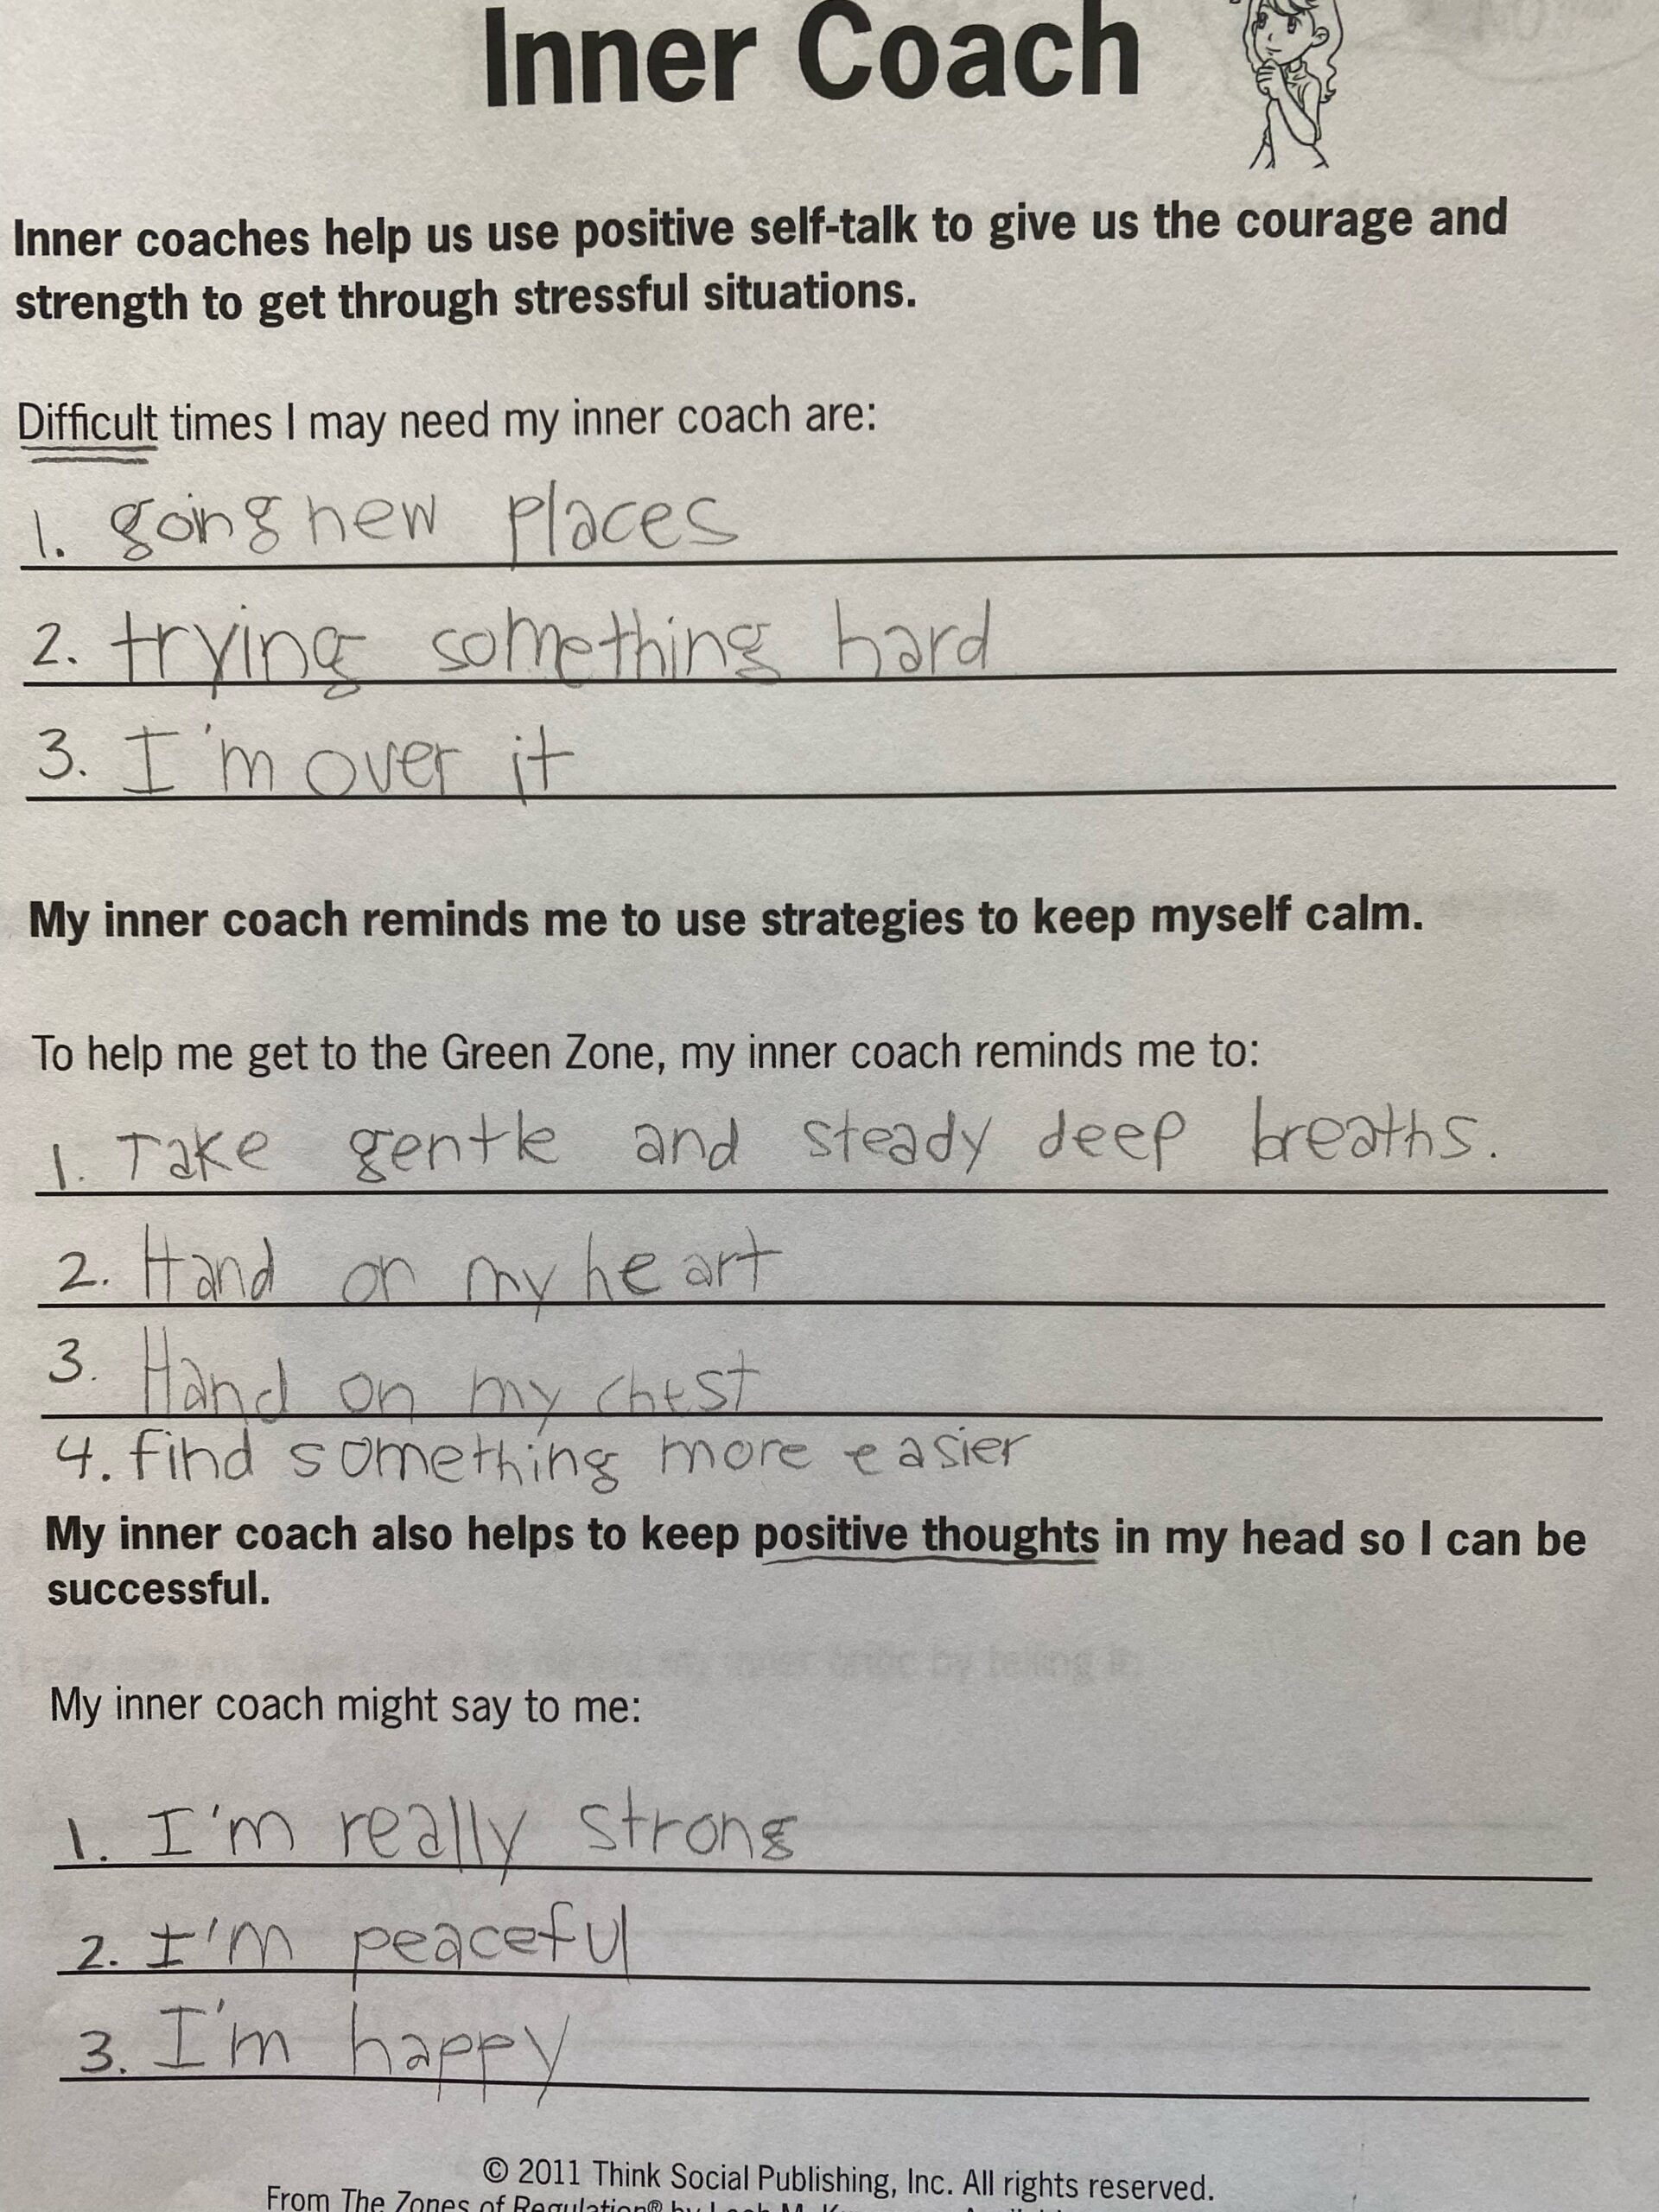 Inner Coach
Inner coaches help us use positive self-talk to give us the courage and
strength to get through stressful situations.
Difficult times I may need my inner coach are:
1. going new places
2. trying something hard
3. I'm over it
My inner coach reminds me to use strategies to keep myself calm.
To help me get to the Green Zone, my inner coach reminds me to:
1. Take gentle and steady deep breaths.
2. Hand on my heart
3. Hand on my chest
4. find something more easier
My inner coach also helps to keep positive thoughts in my head so I can be
successful.
My inner coach might say to me:
1. I'm really strong
2. I'm peaceful
3. I'm happy
© 2011 Think Social Publishing, Inc. All rights reserved.
From The Zones of Regulation® by